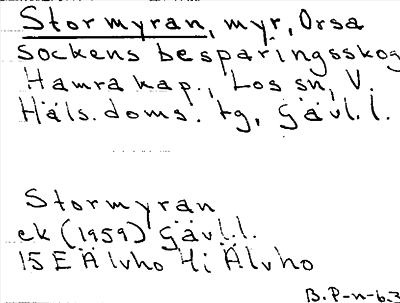 Stormyran, myr, Orsa
sockens besparingsskog
Hamra kap., Los sn, V.
Häls. doms. tg, Gävl. l.
Stormyran
ek (1959) Gävl. l.
15 E Älvho 4i Älvho